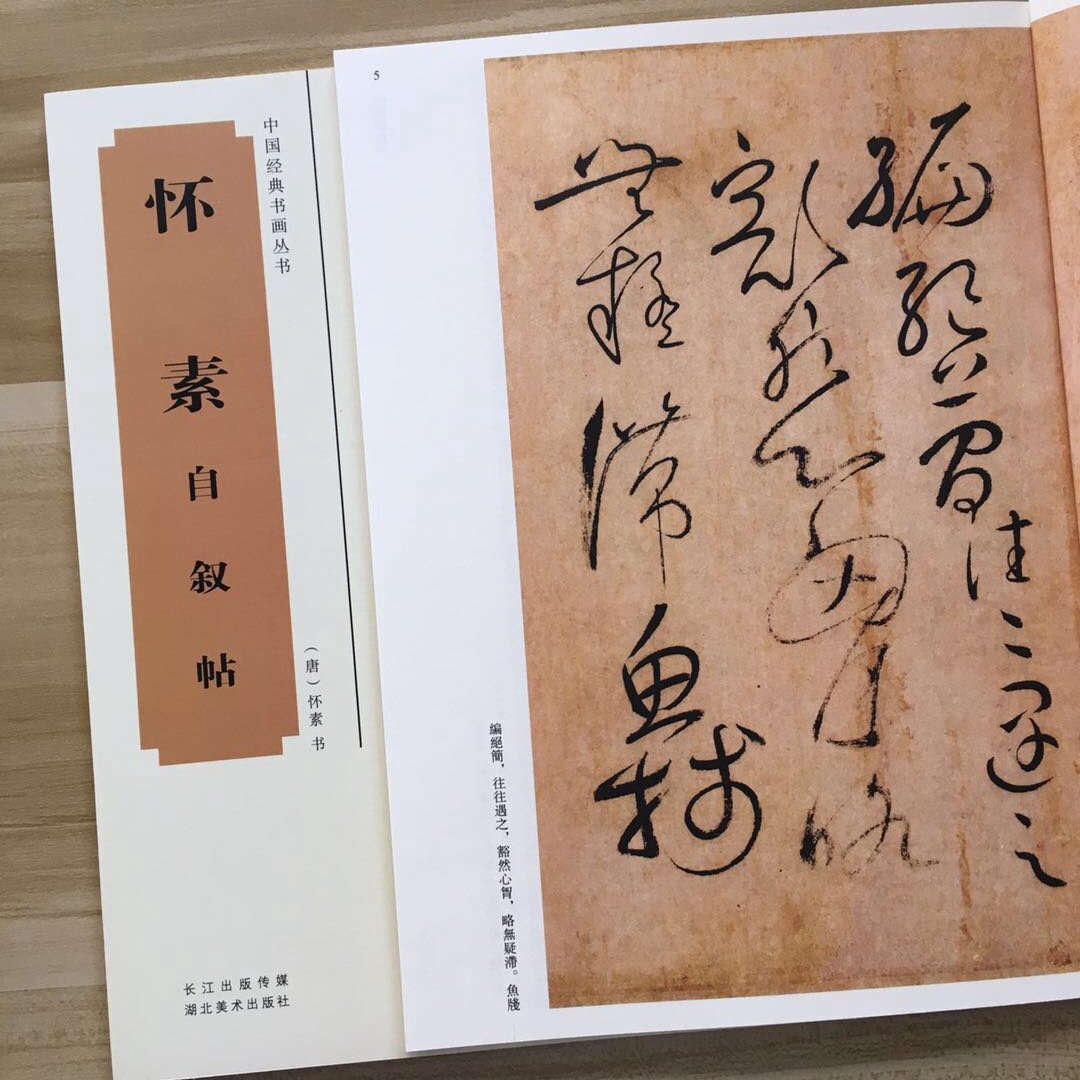 中国经典书画丛书
怀素自叙帖
（唐）怀素 书
长江出版传媒
湖北美术出版社
5
编絕簡往〻遇之
豁然心胷略
無疑滯魚牋
编絕簡，往往遇之，豁然心胷，略無疑滯。魚牋